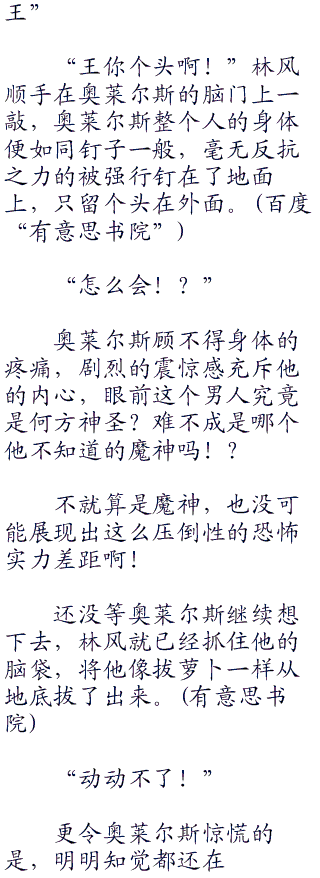 王”
“王你个头啊！”林风
顺手在奥莱尔斯的脑门上一
敲，奥莱尔斯整个人的身体
便如同钉子一般，毫无反抗
之力的被强行钉在了地面
上，只留个头在外面。(百度
“有意思书院”)
“怎么会！？”
奥莱尔斯顾不得身体的
疼痛，剧烈的震惊感充斥他
的内心，眼前这个男人究竟
是何方神圣？难不成是哪个
他不知道的魔神吗！？
不就算是魔神，也没可
能展现出这么压倒性的恐怖
实力差距啊！
还没等奥莱尔斯继续想
下去，林风就已经抓住他的
脑袋，将他像拔萝卜一样从
地底拔了出来。(有意思书
院)
“动动不了！”
更令奥莱尔斯惊慌的
是，明明知觉都还在